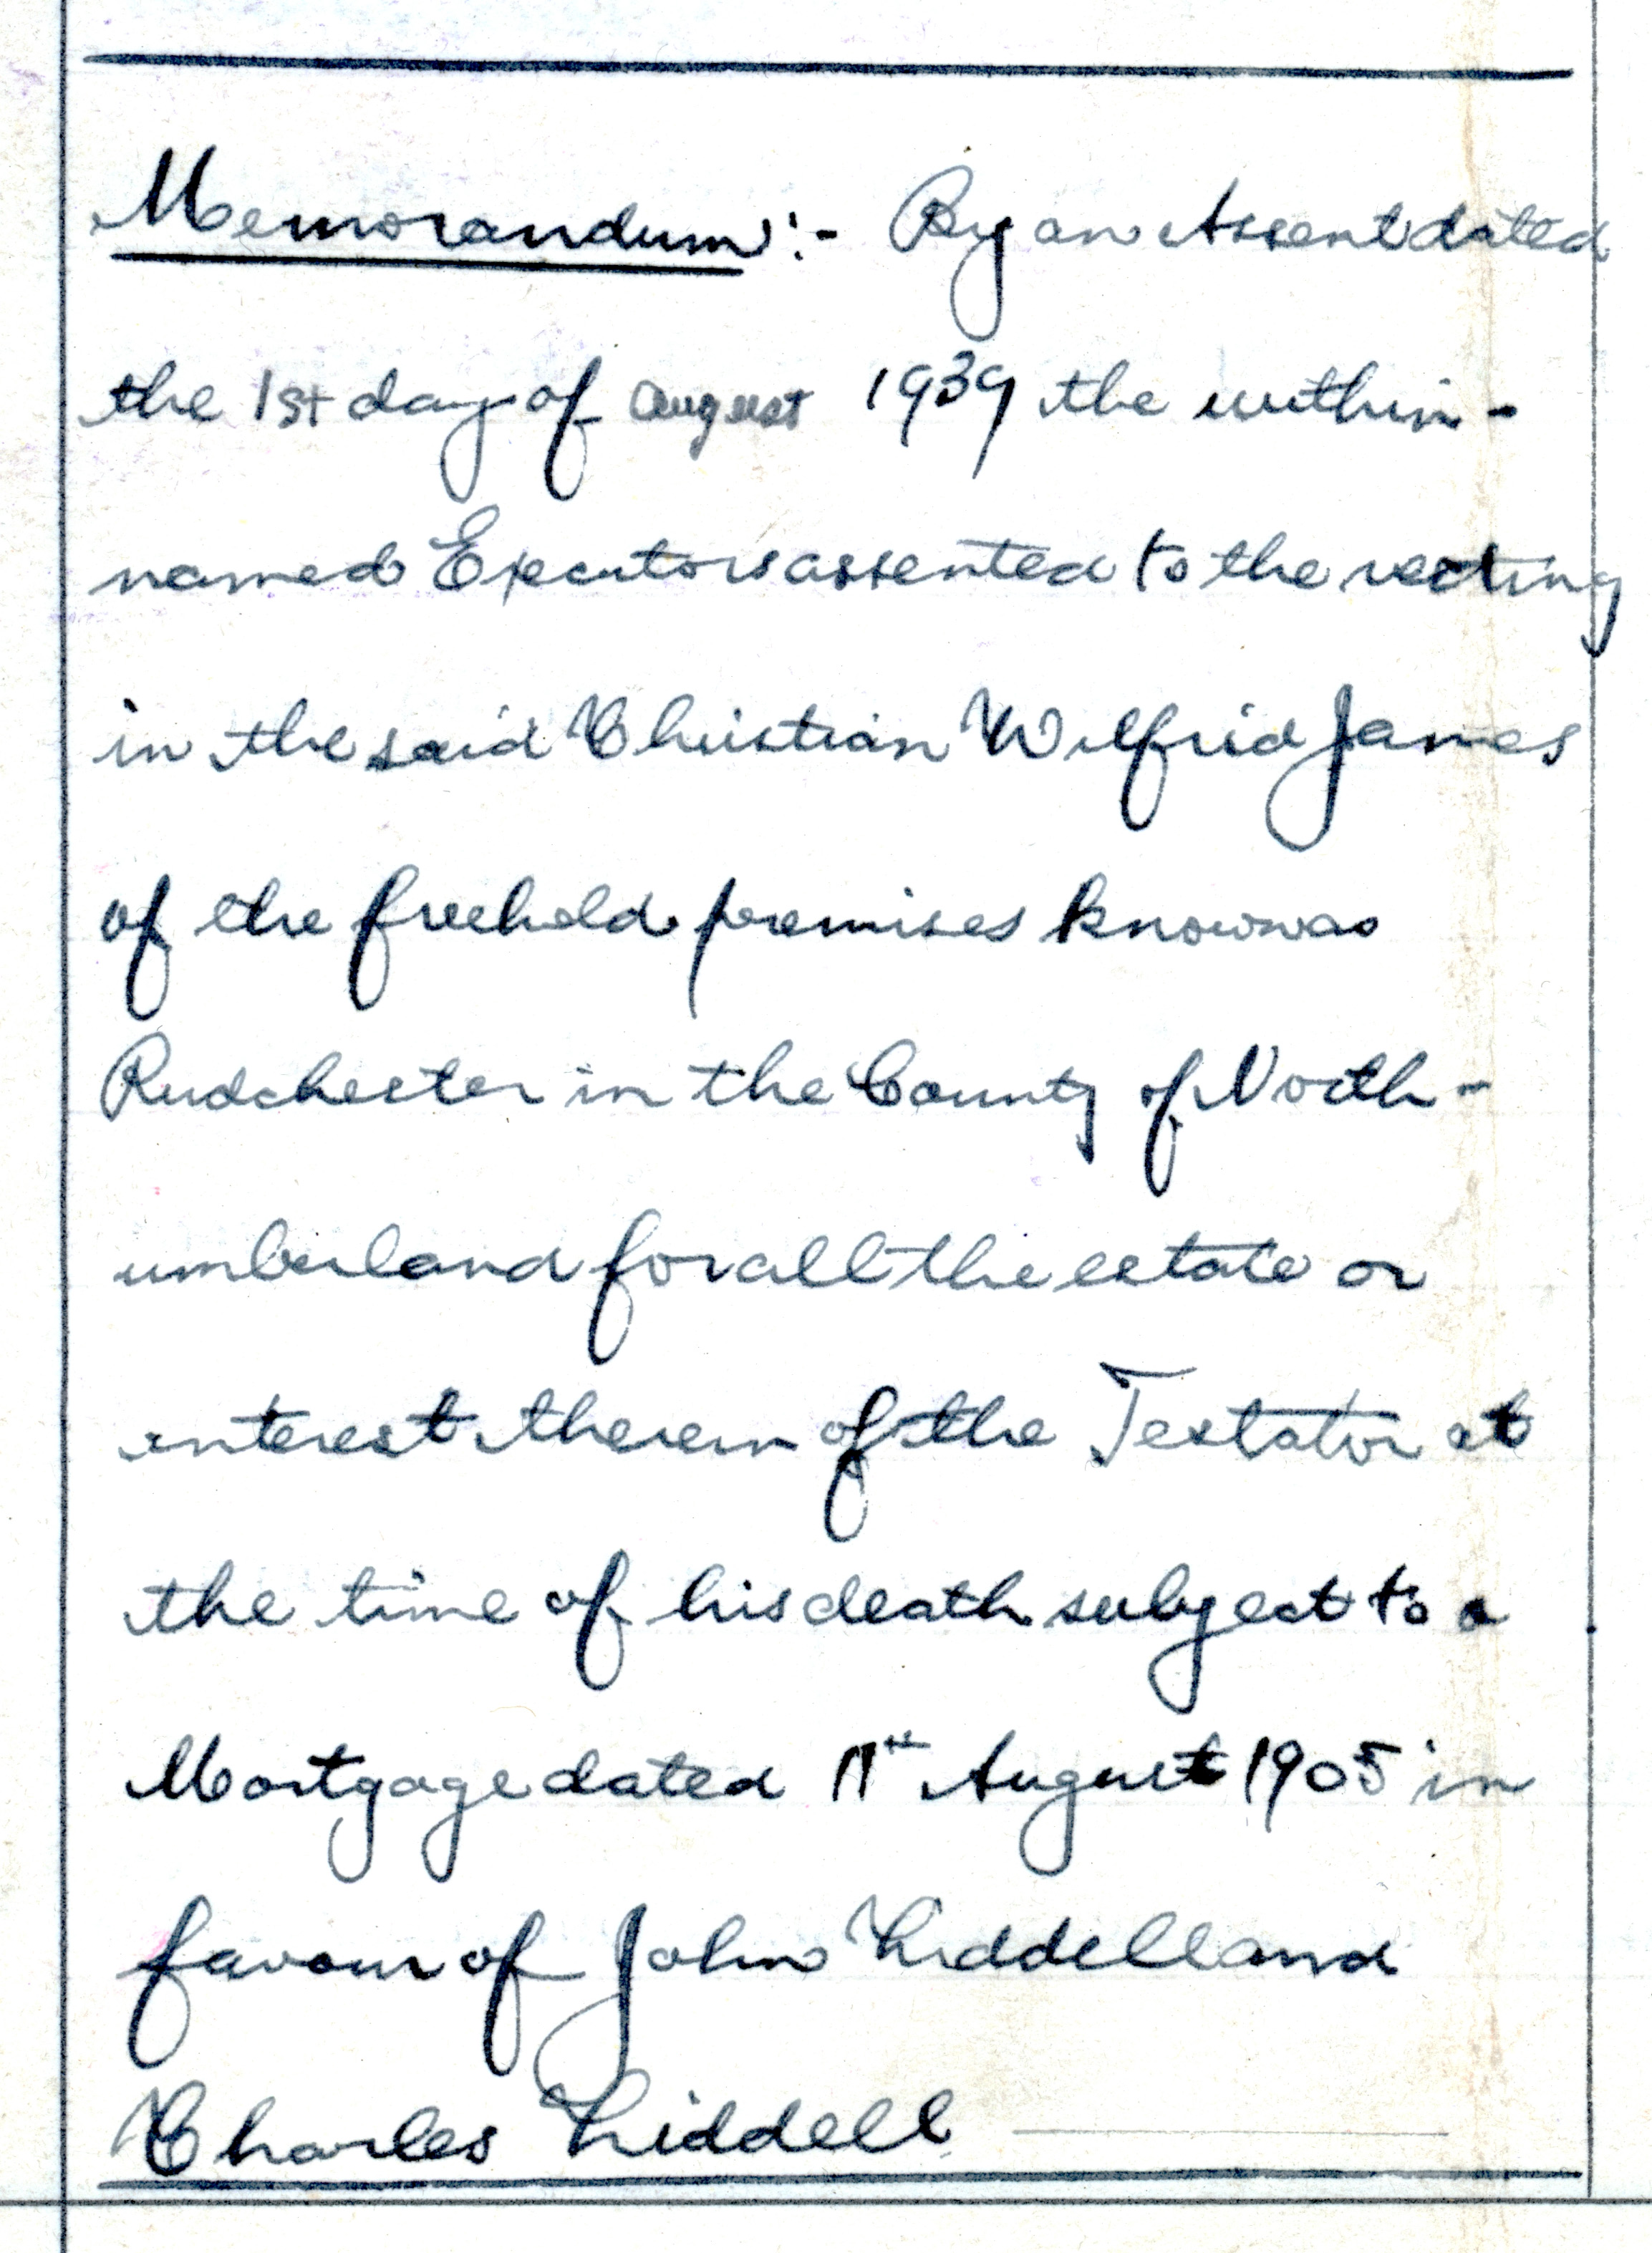 Memorandum:- By an Assent dated
the 1st day of August 1939 the within-
named Executors assented to the vesting
in the said Christian Wilfrid James
of the freehold premises known as
Rudchester in the County of North-
umberland for all the estate or
interest therein of the Testator at
the time of his death subject to a
Mortgage dated 11th August 1905 in
favour of John Liddell and
Charles Liddell